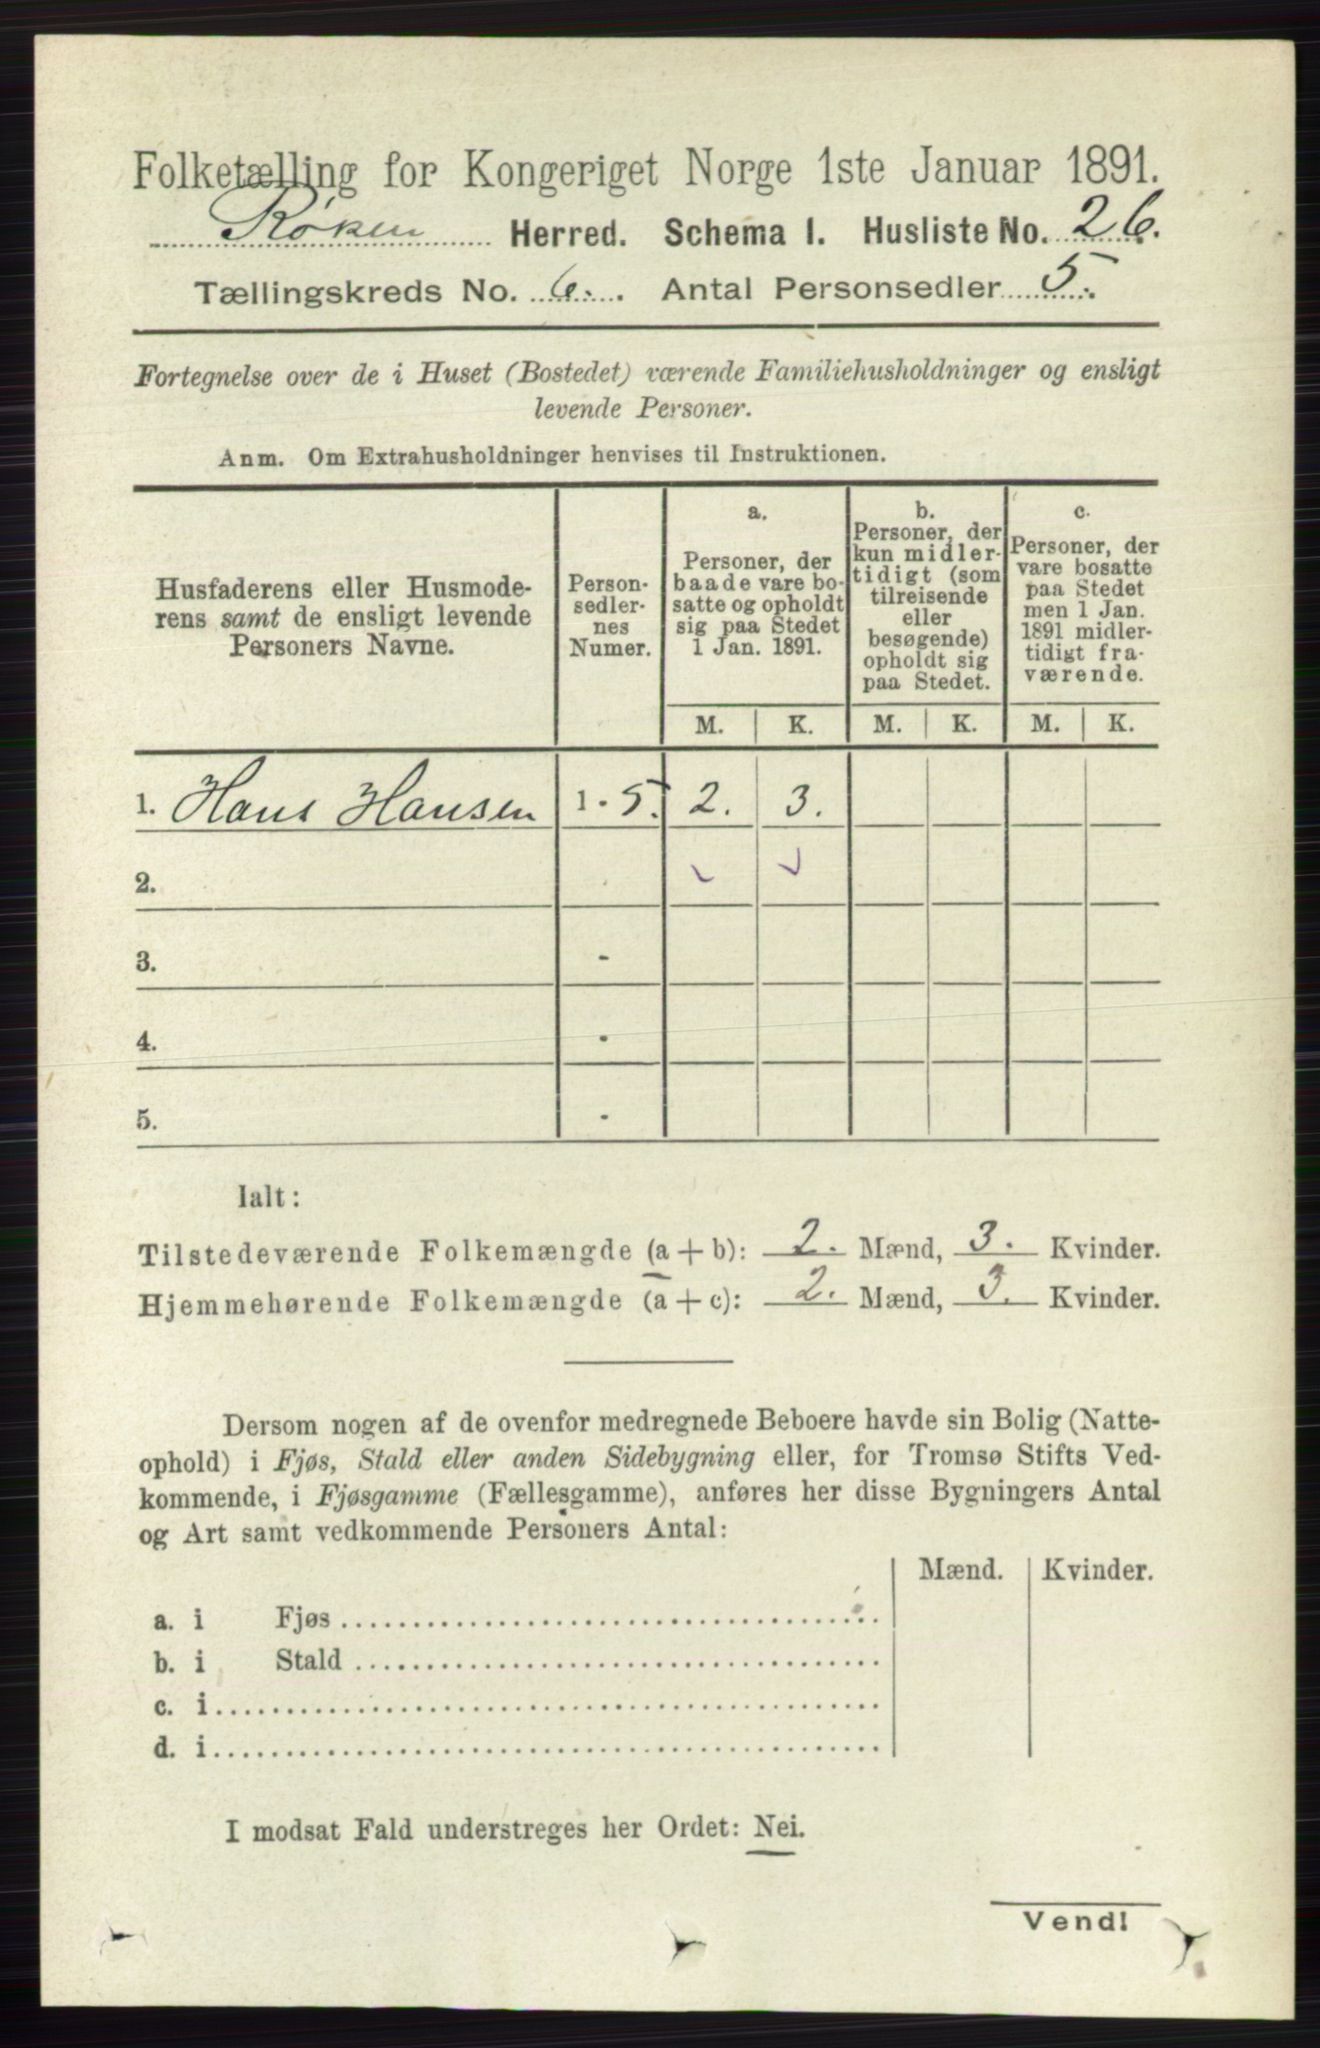 Folketælling for Kongeriget Norge 1ste Januar 1891.
Røken Herred. Schema I. Husliste No. 26.
Tællingskreds No. 6. Antal Personsedler 5.
Fortegnelse over de i Huset (Bostedet) værende Familiehusholdninger og ensligt
levende Personer.
Anm. Om Extrahusholdninger henvises til Instruktionen.
Husfaderens eller Husmode-
rens samt de ensligt levende
Personers Navne.
Person-
sedler-
nes
Numer.
a.
Personer, der
baade vare bo-
satte og opholdt
sig paa Stedet
1 Jan. 1891.
b.
Personer, der
kun midler-
tidigt (som
tilreisende
eller
besøgende)
opholdt sig
paa Stedet.
c.
Personer, der
vare bosatte
paa Stedet
men 1 Jan.
1891 midler-
tidigt fra-
værende.
M. K. M. K. M. K.
1. Hans Hansen 1 - 5. 2. 3.
2.
3. -
4. -
5. -
Ialt:
Tilstedeværende Folkemængde (a + b): 2. Mænd, 3. Kvinder.
Hjemmehørende Folkemængde (a + c): 2. Mænd, 3. Kvinder.
Dersom nogen af de ovenfor medregnede Beboere havde sin Bolig (Natte-
ophold) i Fjøs, Stald eller anden Sidebygning eller, for Tromsø Stifts Ved-
kommende, i Fjøsgamme (Fællesgamme), anføres her disse Bygningers Antal
og Art samt vedkommende Personers Antal:
Mænd. Kvinder.
a. i Fjøs
b. i Stald
c. i
d. i
I modsat Fald understreges her Ordet: Nei.
Vend!